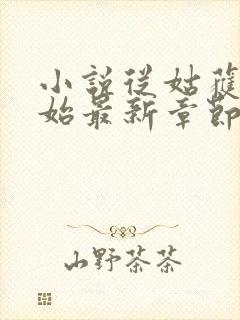 小説從姑蘓
始最新章節
山野茶茶